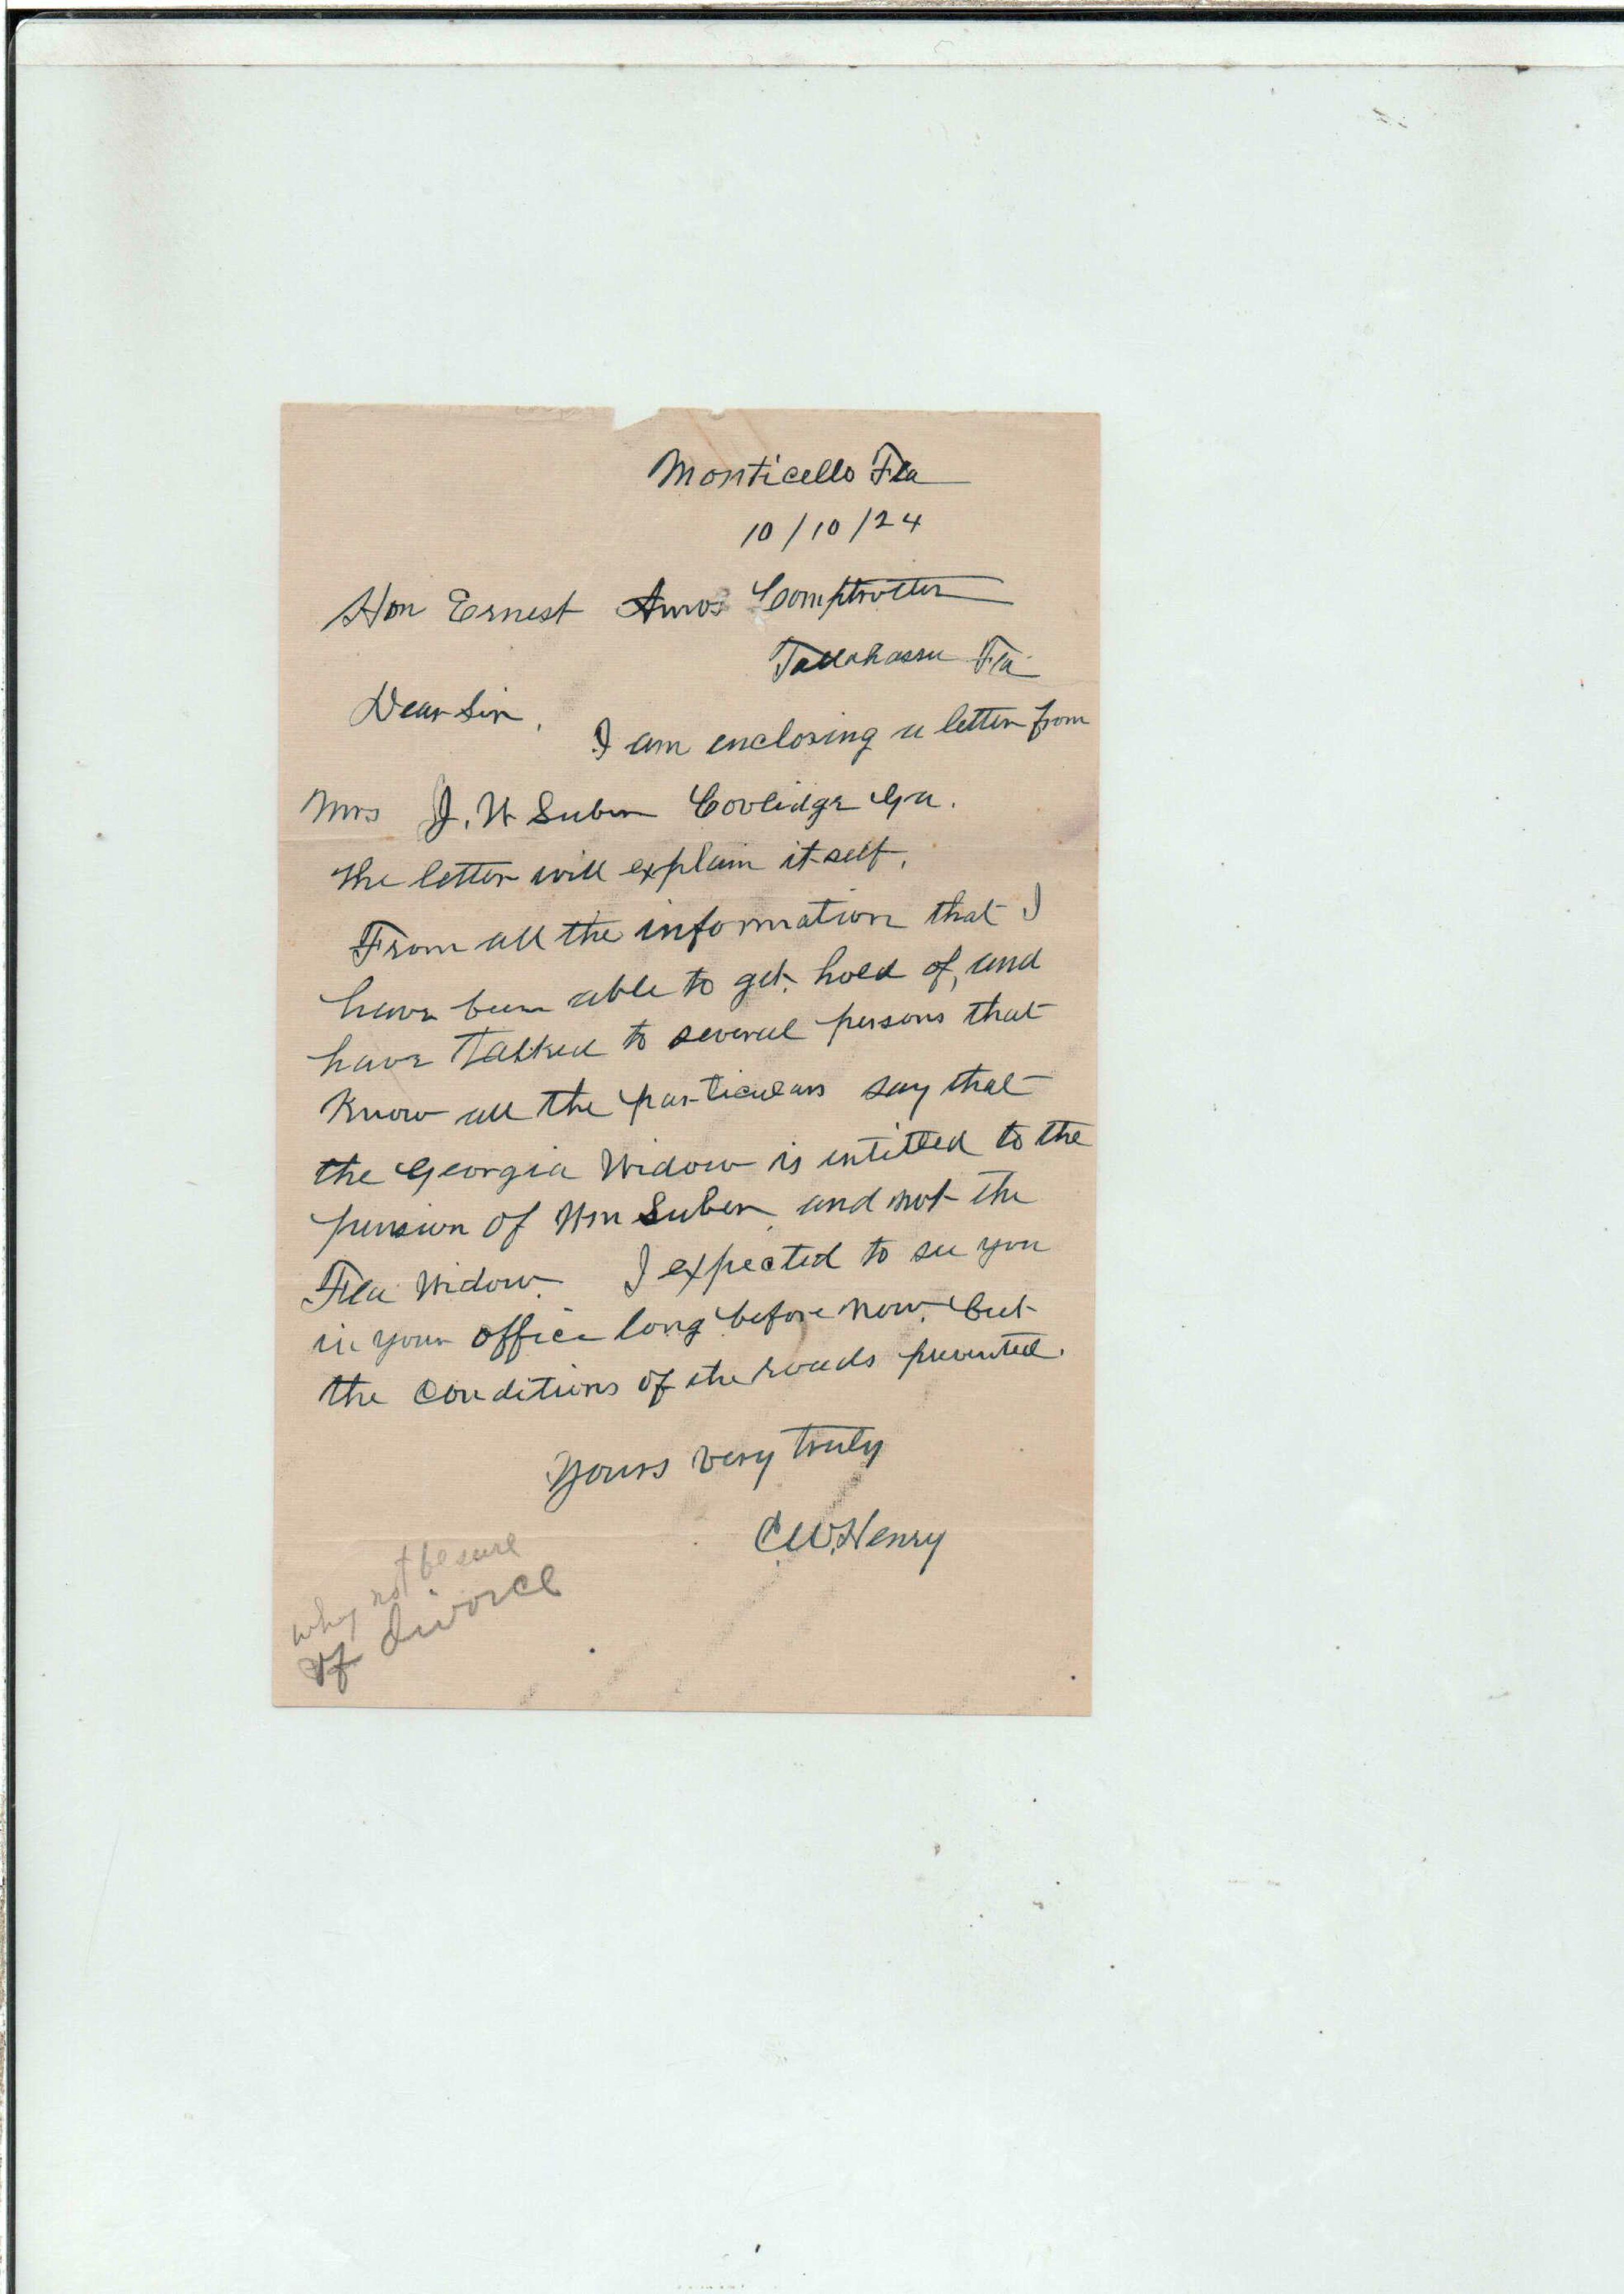 Monticello Fla
10/10/24
Hon Ernest Amos Comptroller
Tallahassee Fla
Dear Sir,
I am enclosing a letter from
Mrs J. W Suber Coolidge Ga.
The letter will explain itself.
From all the information that I
have been able to get hold of, and
have talked to several persons that
Know all the particulars say that
the Georgia Widow is intitled to the
pension of Wm Suber and not the
Fla Widow. I expected to see you
in your office long before now. but
the conditions of the roads prevented.
Yours very truly
C.W.Henry
why not be sure
of divorce